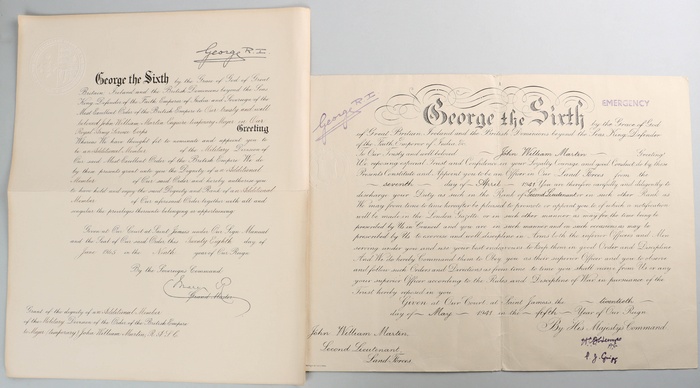 George R.I.
George the Sixth by the Grace of God of Great
Britain, Ireland and the British Dominions beyond the Seas
King, Defender of the Faith, Emperor of India and Sovereign of the
Most Excellent Order of the British Empire to Our trusty and well
beloved John William Martin Esquire temporary Major in Our
Royal Army Service Corps
Greeting
Whereas We have thought fit to nominate and appoint you to
be an Additional Member of the Military Division of
Our said Most Excellent Order of the British Empire We do
by these presents grant unto you the Dignity of an Additional
Member of Our said Order and hereby authorise you
to have hold and enjoy the said Dignity and Rank of an Additional
Member of Our aforesaid Order together with all and
singular the privileges thereunto belonging or appertaining
Given at Our Court at Saint James's under Our Sign Manual
and the Seal of Our said Order this Twenty Eighth day of
June 1945 in the Ninth year of Our Reign
By the Sovereign's Command
Mary R
Grand Master
Grant of the dignity of an Additional Member
of the Military Division of the Order of the British Empire
to Major (temporary) John William Martin, R.A.S.C.
George R.I.
EMERGENCY
George the Sixth by the Grace of God
of Great Britain, Ireland and the British Dominions beyond the Seas King, Defender
of the Faith, Emperor of India &c
To Our Trusty and well beloved John William Martin Greeting!
We reposing especial Trust and Confidence in your Loyalty, Courage, and good Conduct, do by these
Presents Constitute and Appoint you to be an Officer in Our Land Forces from the
seventh day of April 1941. You are therefore carefully and diligently to
discharge your Duty as such in the Rank of Second Lieutenant or in such other Rank as
We may from time to time hereafter be pleased to promote or appoint you to of which a notification
will be made in the London Gazette, or in such other manner as may for the time being be
prescribed by Us in Council, and you are in such manner and on such occasions as may be
prescribed by Us to exercise and well discipline in Arms both the inferior Officers and Men
serving under you and use your best endeavours to keep them in good Order and Discipline
And We do hereby Command them to Obey you as their superior Officer and you to observe
and follow such Orders and Directions as from time to time you shall receive from Us, or any
your superior Officer according to the Rules and Discipline of War in pursuance of the
Trust hereby reposed in you
Given at Our Court, at Saint James's, the twentieth
day of May 1941 in the fifth Year of Our Reign
By His Majesty's Command
John William Martin
Second Lieutenant
Land Forces
P. J. Grigg